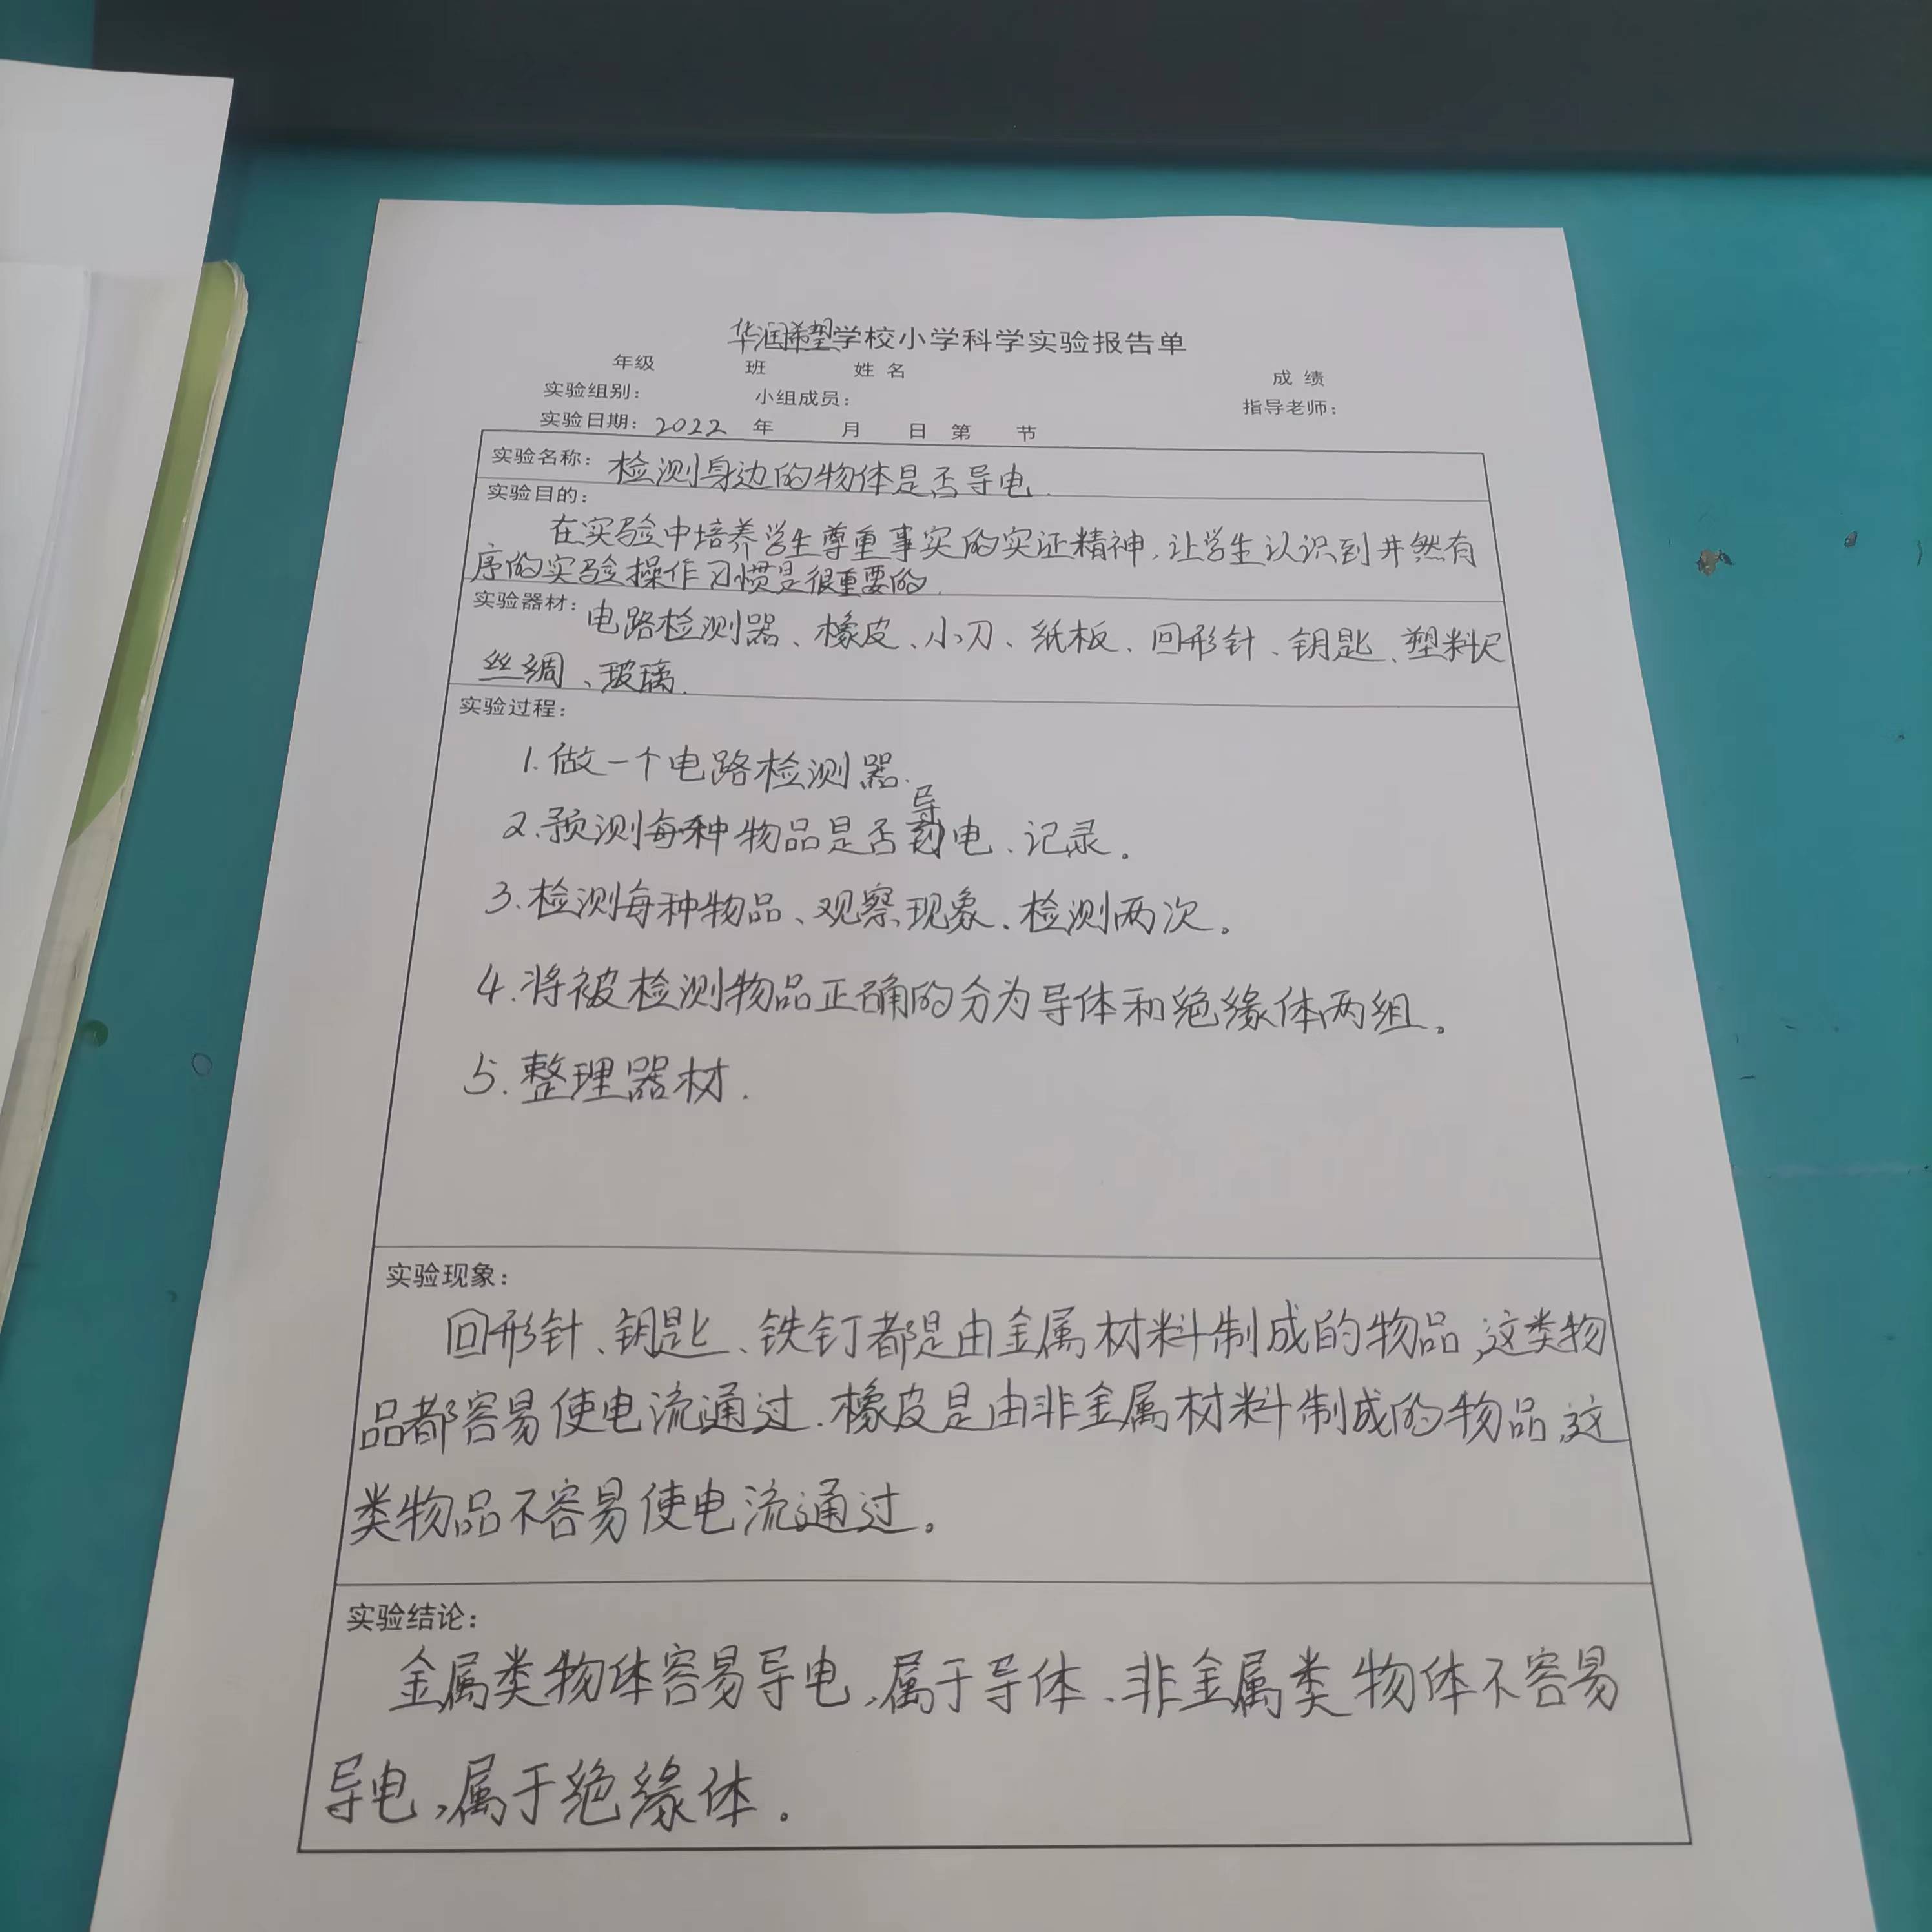 华润希望学校小学科学实验报告单
年级 班 姓名 成绩
实验组别： 小组成员： 指导老师：
实验日期：2022 年 月 日 第 节
实验名称：检测身边的物体是否导电.
实验目的：
在实验中培养学生尊重事实的实证精神，让学生认识到井然有
序的实验操作习惯是很重要的.
实验器材：电路检测器、橡皮、小刀、纸板、回形针、钥匙、塑料尺
丝绸、玻璃.
实验过程：
1.做一个电路检测器.
2.预测每种物品是否导电、记录。
3.检测每种物品、观察现象、检测两次。
4.将被检测物品正确的分为导体和绝缘体两组。
5.整理器材.
实验现象：
回形针、钥匙、铁钉都是由金属材料制成的物品,这类物
品都容易使电流通过.橡皮是由非金属材料制成的物品,这
类物品不容易使电流通过。
实验结论：
金属类物体容易导电,属于导体、非金属类物体不容易
导电,属于绝缘体.